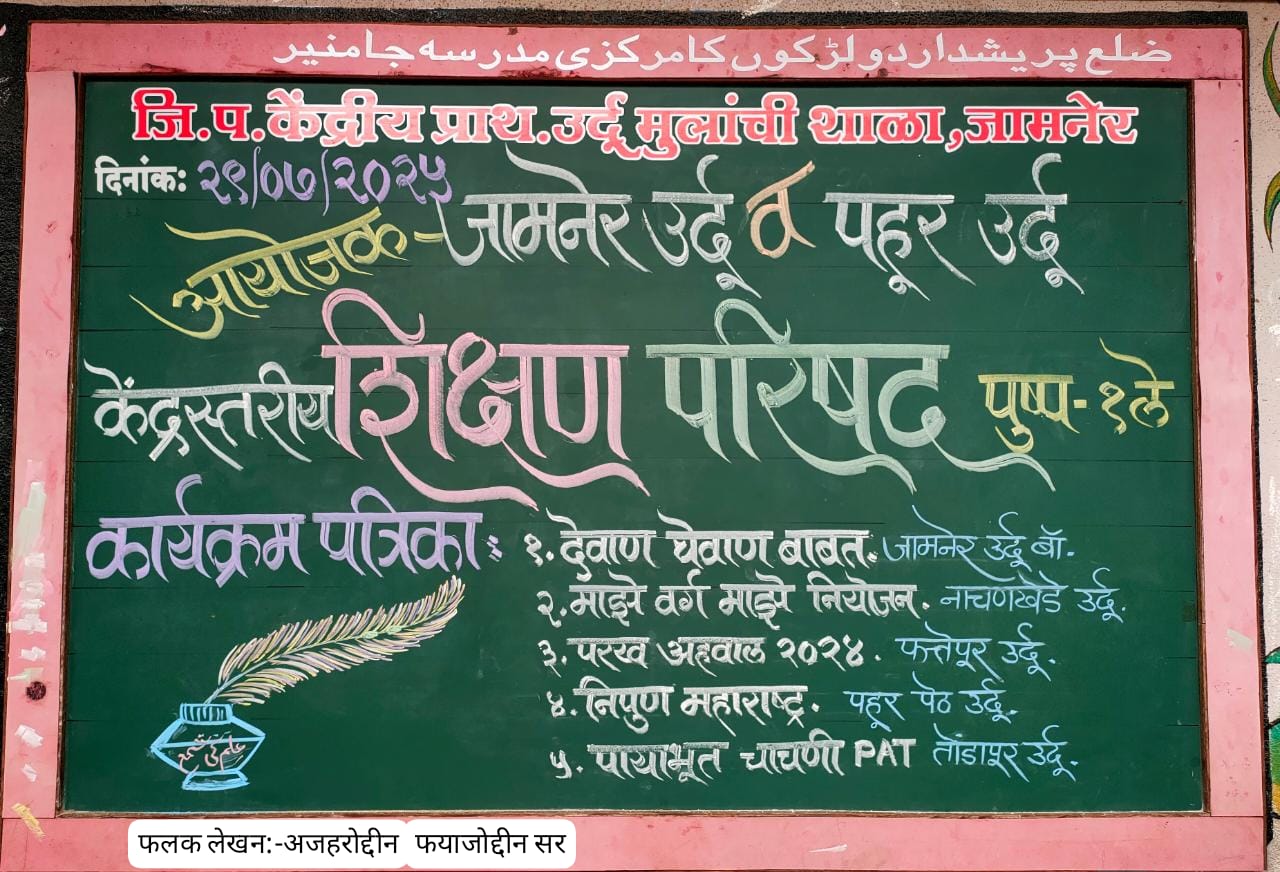 ضلع پریشد اردو لڑکوں کا مرکزی مدرسہ جامنیر
जि.प.केंद्रीय प्राथ.उर्दू मुलांची शाळा,जामनेर
दिनांक: २९/०७/२०२५
आयोजक - जामनेर उर्दू व पहूर उर्दू
केंद्रस्तरीय शिक्षण परिषद पुष्प - १ले
कार्यक्रम पत्रिका :
१. देवाण घेवाण बाबत. जामनेर उर्दू बॉ.
२. माझे वर्ग माझे नियोजन. नाचणखेडे उर्दू.
३. परख अहवाल २०२४. फत्तेपूर उर्दू.
४. निपुण महाराष्ट्र. पहूर पेठ उर्दू.
५. पायाभूत चाचणी PAT तोंडापूर उर्दू.
फलक लेखन:-अजहरोद्दीन फयाजोद्दीन सर